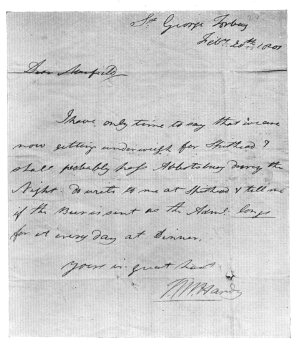 St. George Torbay
Feby. 20th. 1801
Dear Manfield
I have only time to say that we are
now getting underweigh for Spithead &
shall probably pass Abbotsbury during the
Night. Do write to me at Spithead & tell me
if the Beer is sent as the Adml. Longs
for it every day at dinner.
Yours in great haste
T M Hardy